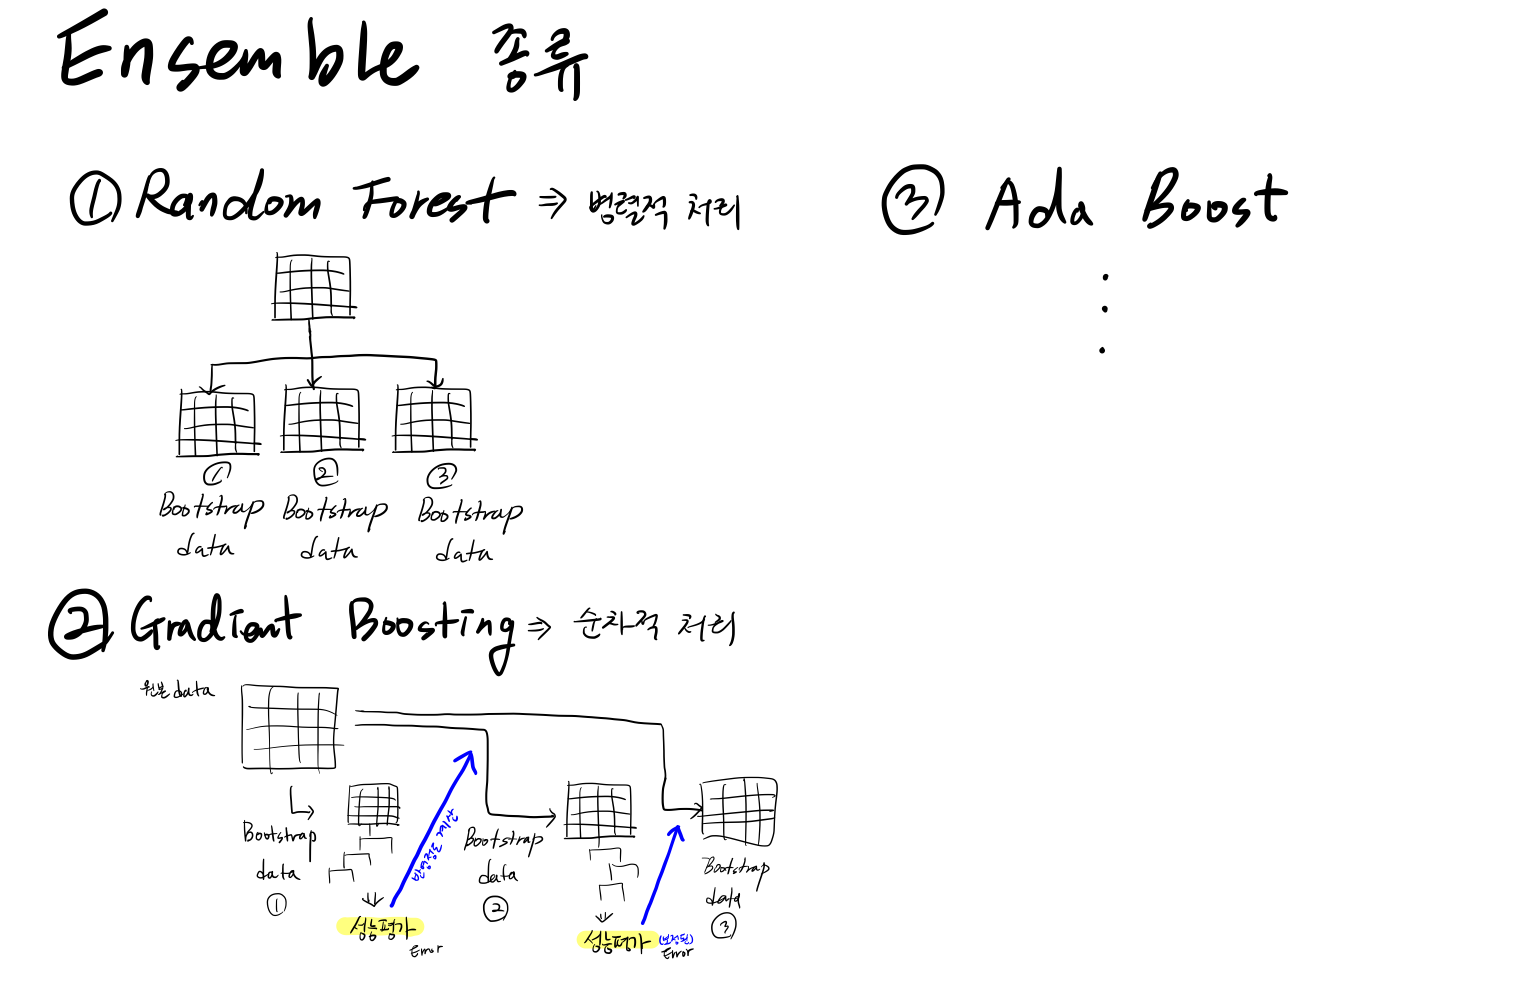 Ensemble 종류
① Random Forest ⇒ 병렬적 처리
① ② ③
Bootstrap data
Bootstrap data
Bootstrap data
② Gradient Boosting ⇒ 순차적 처리
원본 data
Bootstrap
data
①
성능평가
Error
반영정도 계산
Bootstrap
data
②
성능평가
(보정된)
Error
Bootstrap
data
③
③ Ada Boost